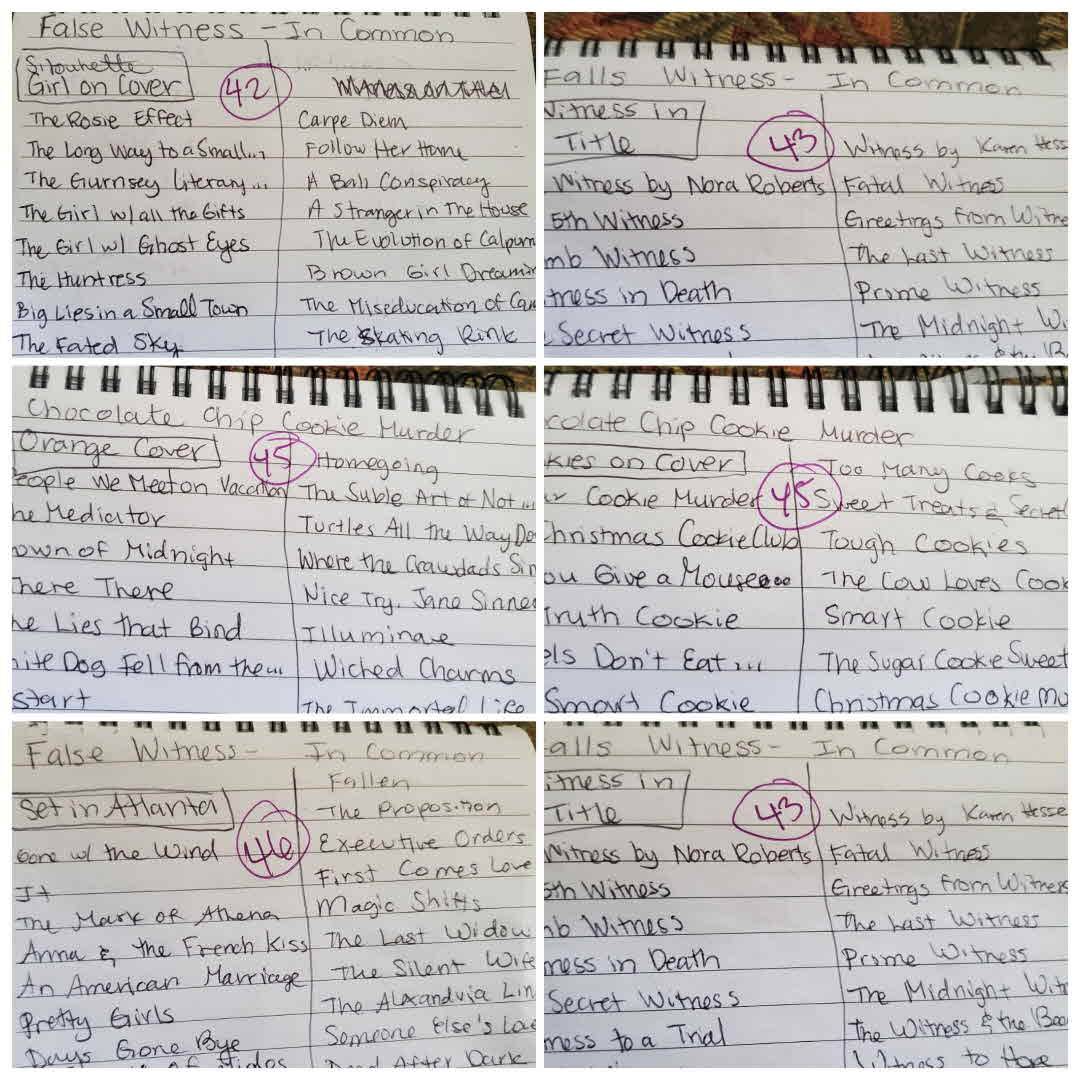 False Witness - In Common
Silouhette
Girl on Cover
42
The Rosie Effect
Carpe Diem
The Long Way to a Small...
Follow Her Home
The Gurnsey Literary...
A Bali Conspiracy
The Girl w/ all the Gifts
A Stranger in The House
The Girl w/ Ghost Eyes
The Evolution of Calpurn
The Huntress
Brown Girl Dreamin
Big Lies in a Small Town
The Miseducation of Cam
The Fated Sky
The Skating Rink
Falls Witness - In Common
Witness in
Title
43
Witness by Karen Hess
Witness by Nora Roberts
Fatal Witness
5th Witness
Greetings from Witne
mb Witness
The Last Witness
tness in Death
Prime Witness
Secret Witness
The Midnight Wi
Chocolate Chip Cookie Murder
Orange Cover
45
Homegoing
eople We Meet on Vacation
The Suble Art of Not...
he Mediator
Turtles All the Way Do
own of Midnight
Where the Crawdads Sin
here There
Nice Try, Jane Sinne
he Lies that Bind
Illuminae
ite Dog Fell from the...
Wicked Charms
Start
The Immortal Life
colate Chip Cookie Murder
kies on Cover
45
Too Many Cooks
Cookie Murder
Sweet Treats & Secret
Christmas Cookie Club
Tough Cookies
ou Give a Mouse...
The Cow Loves Cook
Truth Cookie
Smart Cookie
els Don't Eat...
The Sugar Cookie Sweet
Smart Cookie
Christmas Cookie Mu
False Witness - In Common
Fallen
Set in Atlanta
46
The Proposition
Gone w/ the Wind
Executive Orders
First Comes Love
It
Magic Shifts
The Mark of Athena
Anna & the French Kiss
The Last Widow
An American Marriage
The Silent Wife
Pretty Girls
The Alexandria Lin
Days Gone Bye
Someone Else's Love
Dead After Dark
alls Witness - In Common
itness in
Title
43
Witness by Karen Hesse
Witness by Nora Roberts
Fatal Witness
5th Witness
Greetings from Witness
mb Witness
The Last Witness
ness in Death
Prime Witness
Secret Witness
The Midnight Witn
ness to a Trial
The Witness & the Bea
Witness to Hope